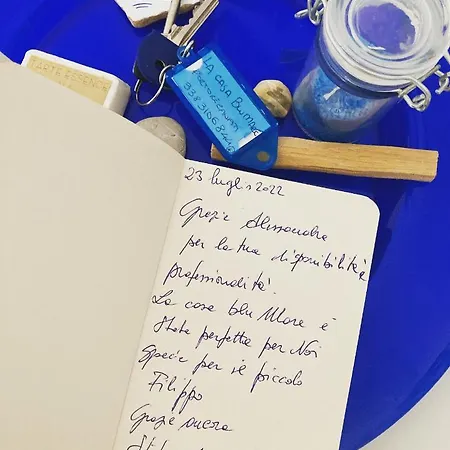 LA CASA BLU MARE
23 luglio 2022
Grazie Alessandra
per la tua disponibilità e
professionalità.
La casa blu Mare è
stata perfetta per Noi
specie per il piccolo
Filippo
Grazie ancora